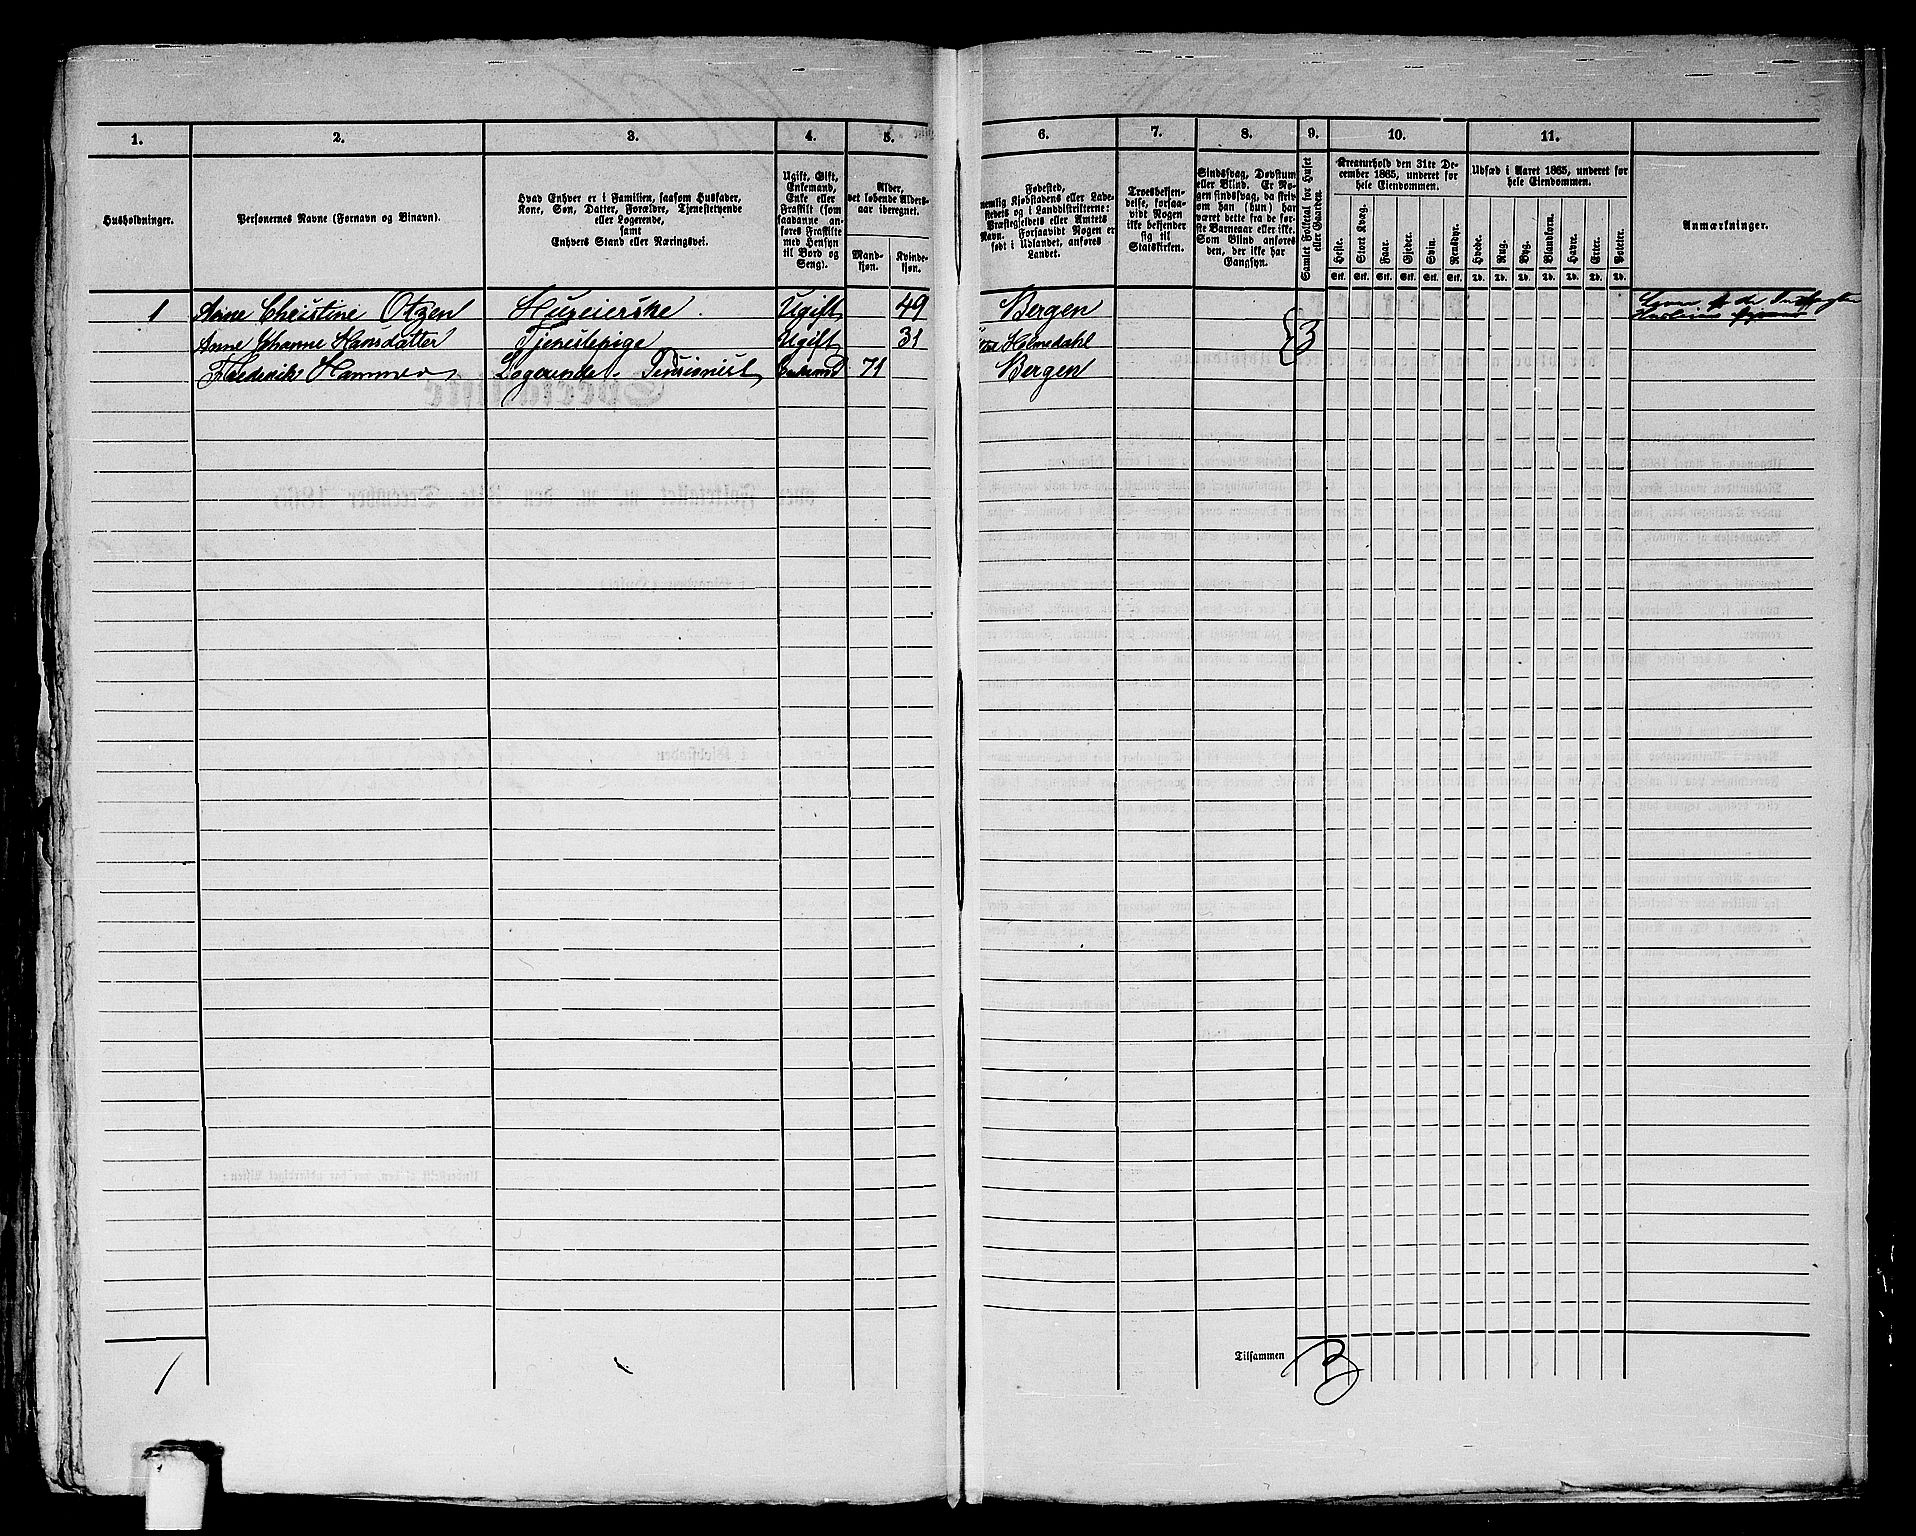 1. 2. 3. 4. 5. 6. 7. 8. 9. 10. 11.
Husholdninger.
Personernes Navne (Fornavn og Binavn).
Hvad Enhver er i Familien, saasom Husfader,
Kone, Søn, Datter, Forældre, Tjenestetyende
eller Logerende,
samt
Enhvers Stand eller Næringsvei.
Ugift, Gift,
Enkemand,
Enke eller
Fraskilt (som
saadanne an-
føres Fraskilte
med Hensyn
til Bord og
Seng).
Alder,
det løbende Alders-
aar iberegnet.
Mand-
kjøn.
Kvinde-
kjøn.
Fødested,
nemlig Kjøbstadens eller Lade-
stedets og i Landdistrikterne:
Præstegjeldets eller Amtets
Navn. Forsaavidt Nogen er
født i Udlandet, anføres
Landet.
Troesbekjen-
delse, forsaa-
vidt Nogen
ikke bekjender
sig til
Statskirken.
Sindssvag, Døvstum
eller Blind. Er No-
gen sindssvag, da skriv
om han (hun) har
været dette fra de før-
ste Barneaar eller ikke.
Som Blind anføres
den, der ikke har
Gangsyn.
Samlet Folketal for Huset
eller Gaarden.
Kreaturhold den 31te De-
cember 1865, underet for
hele Eiendommen.
Heste. Stort Kvæg. Faar. Gjeder. Svin. Rensdyr.
Stk. Stk. Stk. Stk. Stk. Stk.
Udsæd i Aaret 1865, underet for
hele Eiendommen.
Hvede. Rug. Byg. Blandkorn. Havre. Erter. Poteter.
Td. Td. Td. Td. Td. Td. Td.
Anmærkninger.
1 Anne Christine Otzen Huseierske Ugift 49 Bergen
Anne Johanne Hansdatter Tjenestepige Ugift 31 Holmedahl 3
Frederik Hammer Logerende. Pensionist Enkemd 71 Bergen
1 Tilsammen 3